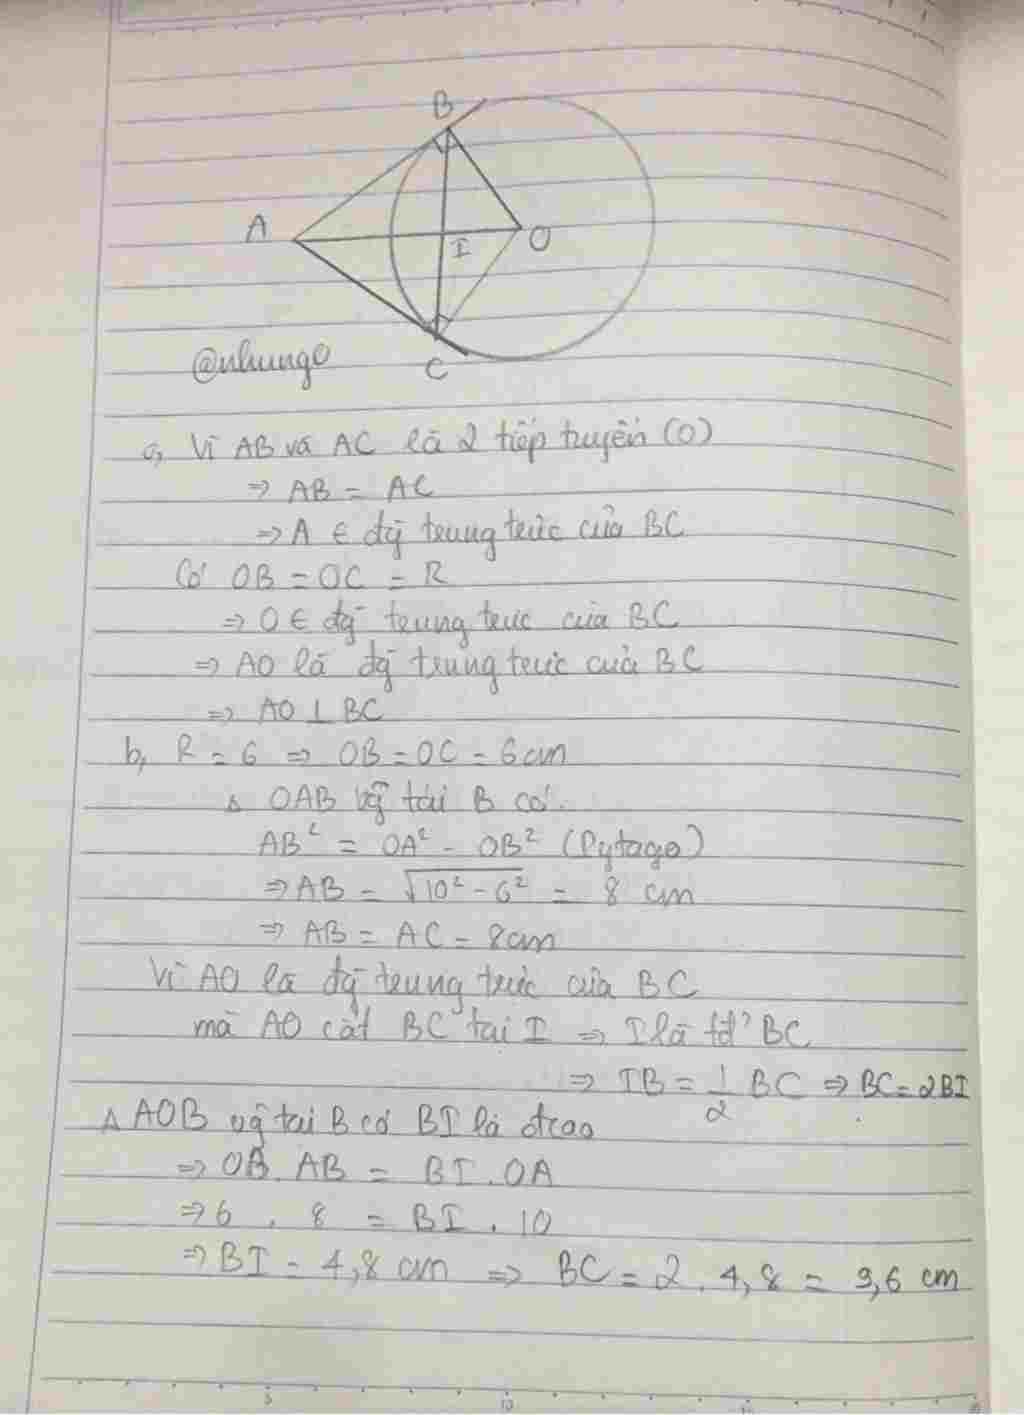 B
A
I
O
C
@nhungo
a, Vì AB và AC là 2 tiếp tuyến (O)
⇒ AB = AC
⇒ A ∈ đg trung trực của BC
Có OB = OC = R
⇒ O ∈ đg trung trực của BC
⇒ AO là đg trung trực của BC
⇒ AO ⊥ BC
b, R = 6 ⇒ OB = OC = 6cm
Δ OAB vg tại B có.
AB² = OA² - OB² (Pytago)
⇒ AB = √10² - 6² = 8 cm
⇒ AB = AC = 8cm
Vì AO là đg trung trực của BC
mà AO cắt BC tại I ⇒ I là tđ' BC
⇒ IB = 1/2 BC ⇒ BC = 2BI
Δ AOB vg tại B có BI là đcao
⇒ OB. AB = BI. OA
⇒ 6 . 8 = BI . 10
⇒ BI = 4,8 cm ⇒ BC = 2. 4,8 = 9,6 cm
5
10